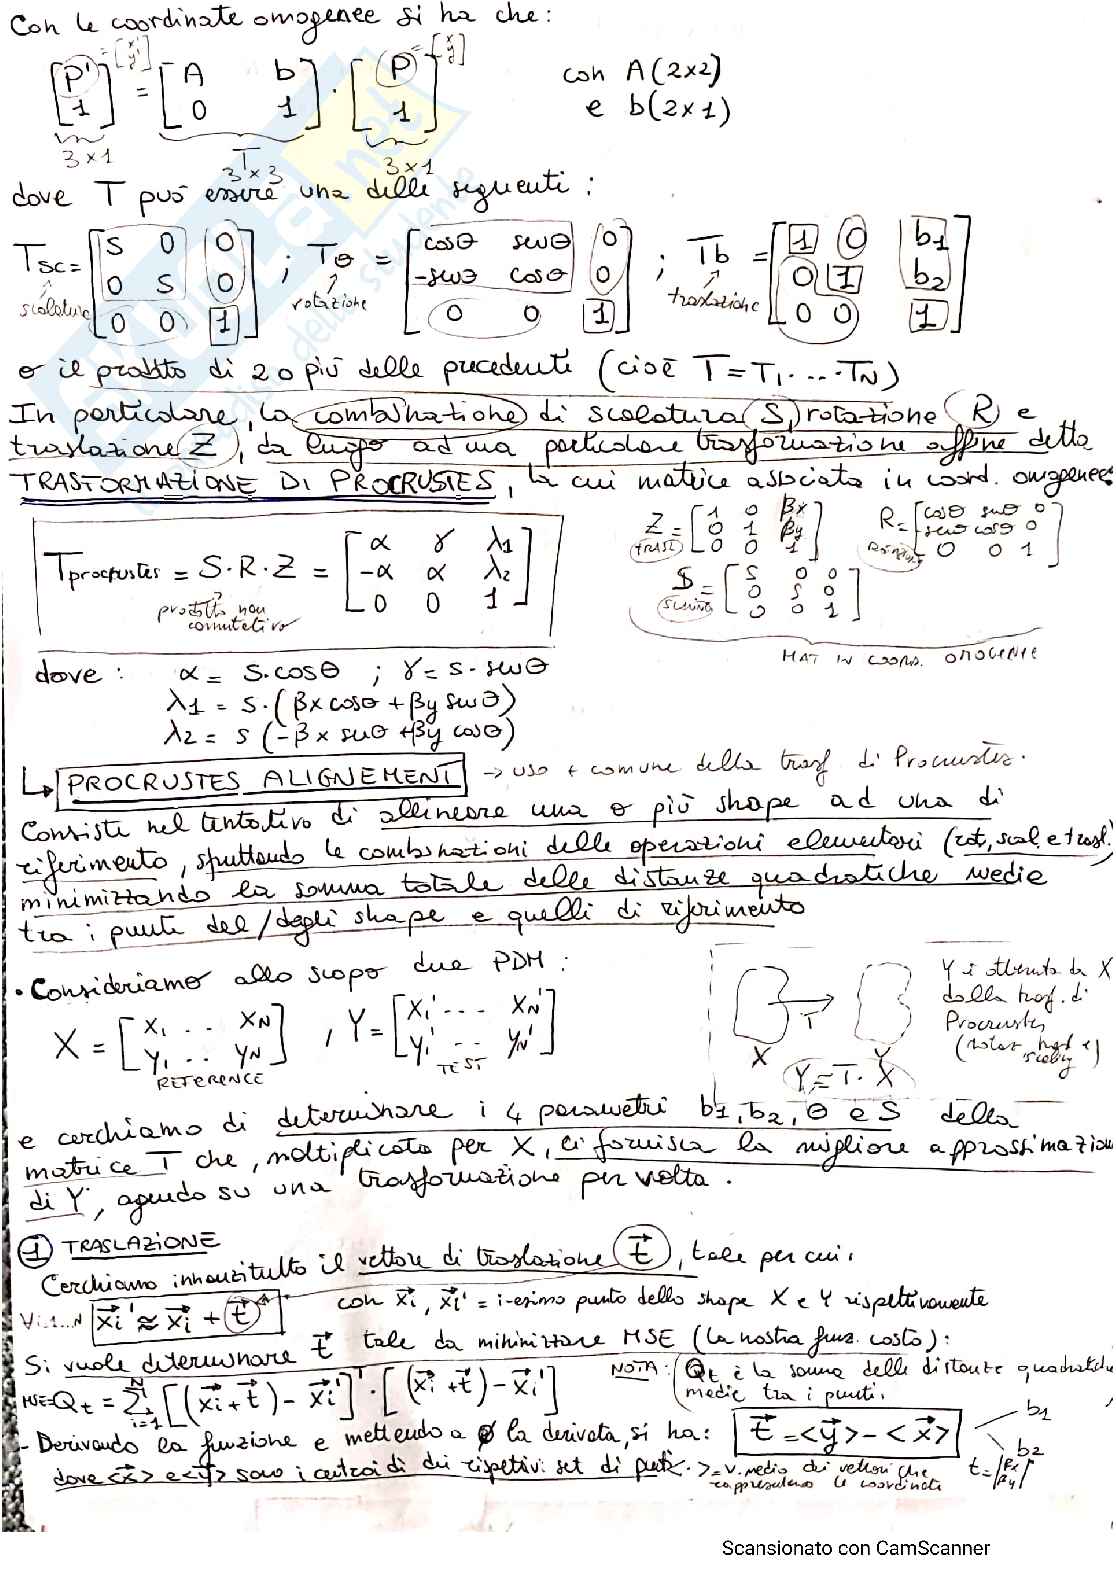 Con le coordinate omogenee si ha che:
[P' 1] = [A b 0 1] · [P 1] con A(2×2)
= [x' y'] = [x y] e b(2×1)
3×1 T 3×3 3×1
dove T può essere una delle seguenti:
Tsc = [S 0 0 0 S 0 0 0 1] ; Tθ = [cosθ senθ 0 -senθ cosθ 0 0 0 1] ; Tb = [1 0 b1 0 1 b2 0 0 1]
scalatura rotazione traslazione
o il prodotto di 2 o più delle precedenti (cioè T = T1 · ... · TN)
In particolare, la combinazione di scalatura (S), rotazione (R) e
traslazione (Z), da luogo ad una particolare trasformazione affine detta
TRASFORMAZIONE DI PROCRUSTES, la cui matrice associata in coord. omogenee:
Tprocrustes = S·R·Z = [α γ λ1 -α α λ2 0 0 1]
prodotto non commutativo
Z = [1 0 βx 0 1 βy 0 0 1] R = [cosθ senθ 0 -senθ cosθ 0 0 0 1]
S = [S 0 0 0 S 0 0 0 1]
MAT IN COORD. OMOGENEE
dove: α = S·cosθ ; γ = S·senθ
λ1 = S·(βx cosθ + βy senθ)
λ2 = S (-βx senθ + βy cosθ)
PROCRUSTES ALIGNEMENT → uso + comune della trasf. di Procrustes.
Consiste nel tentativo di allineare una o più shape ad una di
riferimento, sfruttando le combinazioni delle operazioni elementari (rot, scal. e trasl.)
minimizzando la somma totale delle distanze quadratiche medie
tra i punti del/degli shape e quelli di riferimento
• Consideriamo allo scopo due PDM:
X = [X1 .. XN Y1 .. YN] , Y = [X1' ... XN' Y1' .. YN']
REFERENCE TEST
X T Y
Y = T · X
Y è ottenuta da X
dalla trasf. di
Procrustes
e cerchiamo di determinare i 4 parametri b1, b2, θ e S della
matrice T che, moltiplicata per X, ci fornisca la migliore approssimazion
di Y, agendo su una trasformazione per volta.
1 TRASLAZIONE
Cerchiamo innanzitutto il vettore di traslazione t, tale per cui:
∀i:1...N xi' ≈ xi + t con xi, xi' = i-esimo punto dello shape X e Y rispettivamente
Si vuole determinare t tale da minimizzare MSE (la nostra funz. costo):
MSE = Qt = Σ i=1 N [(xi + t) - xi']T · [(xi + t) - xi']
NOTA: Qt è la somma delle distanze quadratiche
medie tra i punti.
- Derivando la funzione e mettendo a 0 la derivata, si ha: t = <y> - <x>
b1
b2
dove <x> e <y> sono i centroidi dei rispettivi set di punti. > = v. medio dei vettori che
rappresentano le coordinate
t = |βx βy|
Scansionato con CamScanner